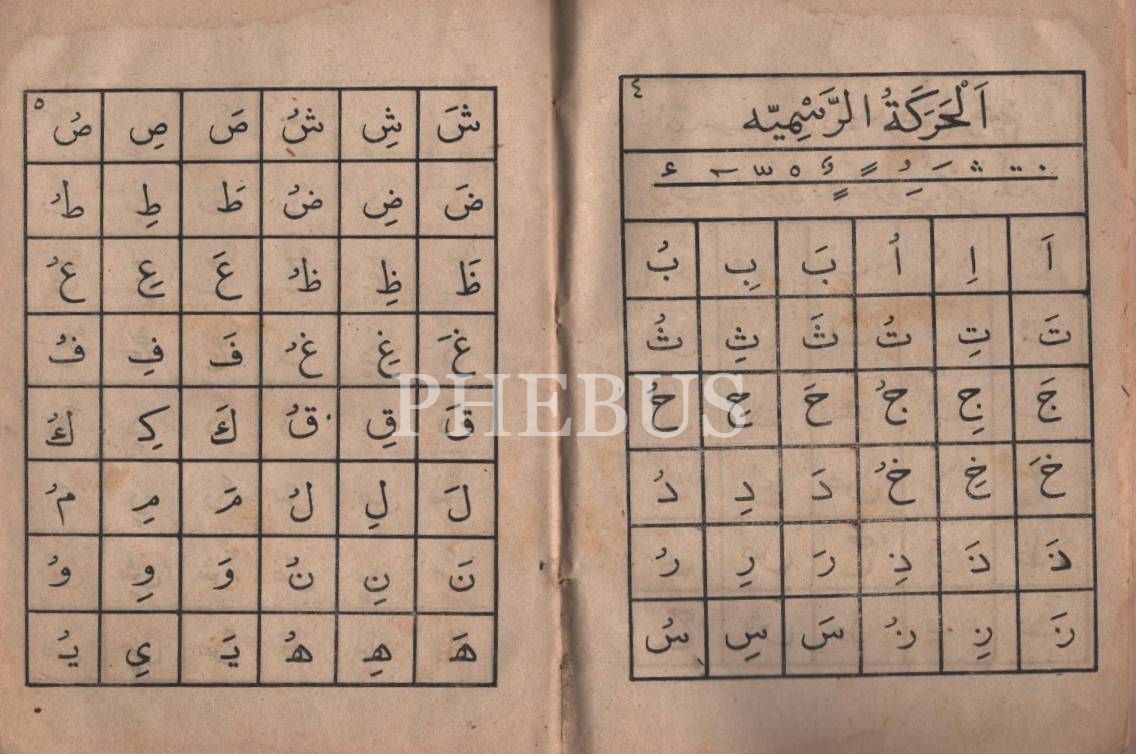 ٤
اَلْحَرَكَةُ الرَّسْمِيّه
اَ اِ اُ بَ بِ بُ
تَ تِ تُ ثَ ثِ ثُ
جَ جِ جُ حَ حِ حُ
خَ خِ خُ دَ دِ دُ
ذَ ذَ ذِ رَ رِ رُ
زَ زِ زُ سَ سِ سُ
٥
شَ شِ شُ صَ صِ صُ
ضَ ضِ ضُ طَ طِ طُ
ظَ ظِ ظُ عَ عِ عُ
غَ غِ غُ فَ فِ فُ
قَ قِ قُ كَ كِ كُ
لَ لِ لُ مَ مِ مُ
نَ نِ نُ وَ وِ وُ
هَ هِ هُ يَ يِ يُ
PHEBUS